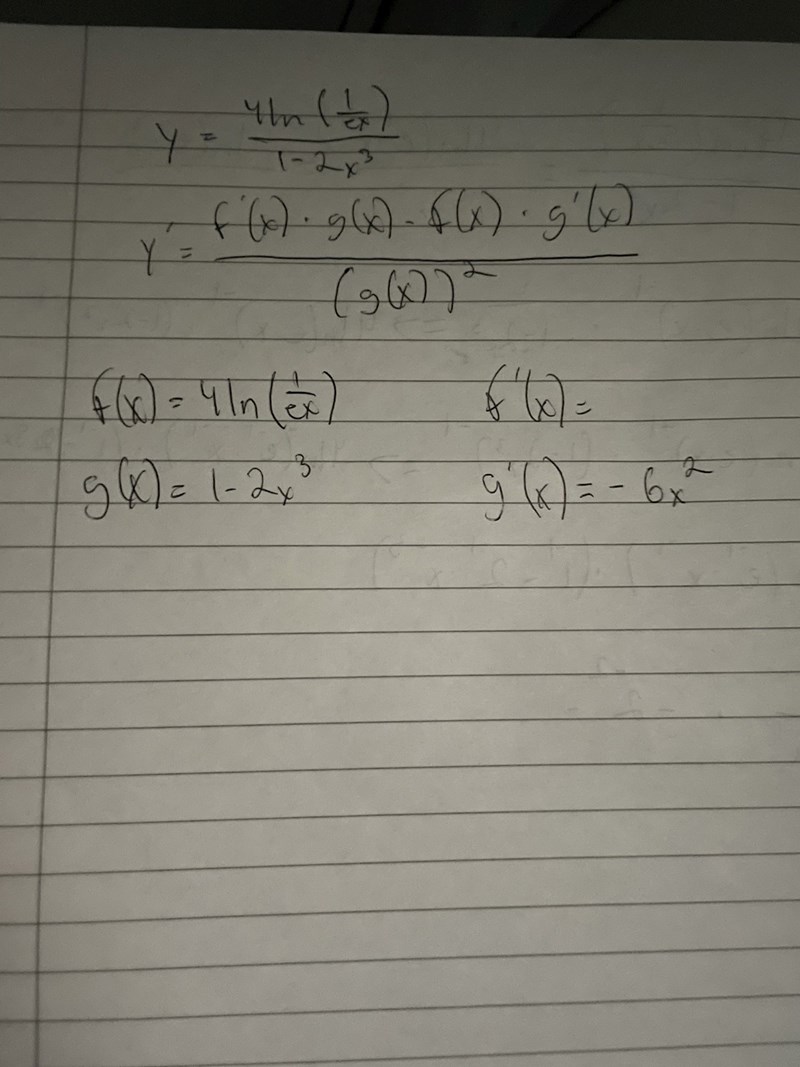 y = 4ln(1/ex) / 1-2x³
y' = f'(x) · g(x) - f(x) · g'(x) / (g(x))²
f(x) = 4ln(1/ex) f'(x) =
g(x) = 1-2x³ g'(x) = -6x²